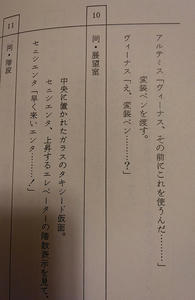 アルテミス「ヴィーナス、その前にこれを使うんだ………」
変装ペンを渡す。
ヴィーナス「え、変装ペン………?」
10
同・展望室
中央に置かれたガラスのタキシード仮面。
セニシエンタ、上昇するエレベーターの階数表示を見て、
セニシエンタ「早く来いエンタ………!」
11
同・階段